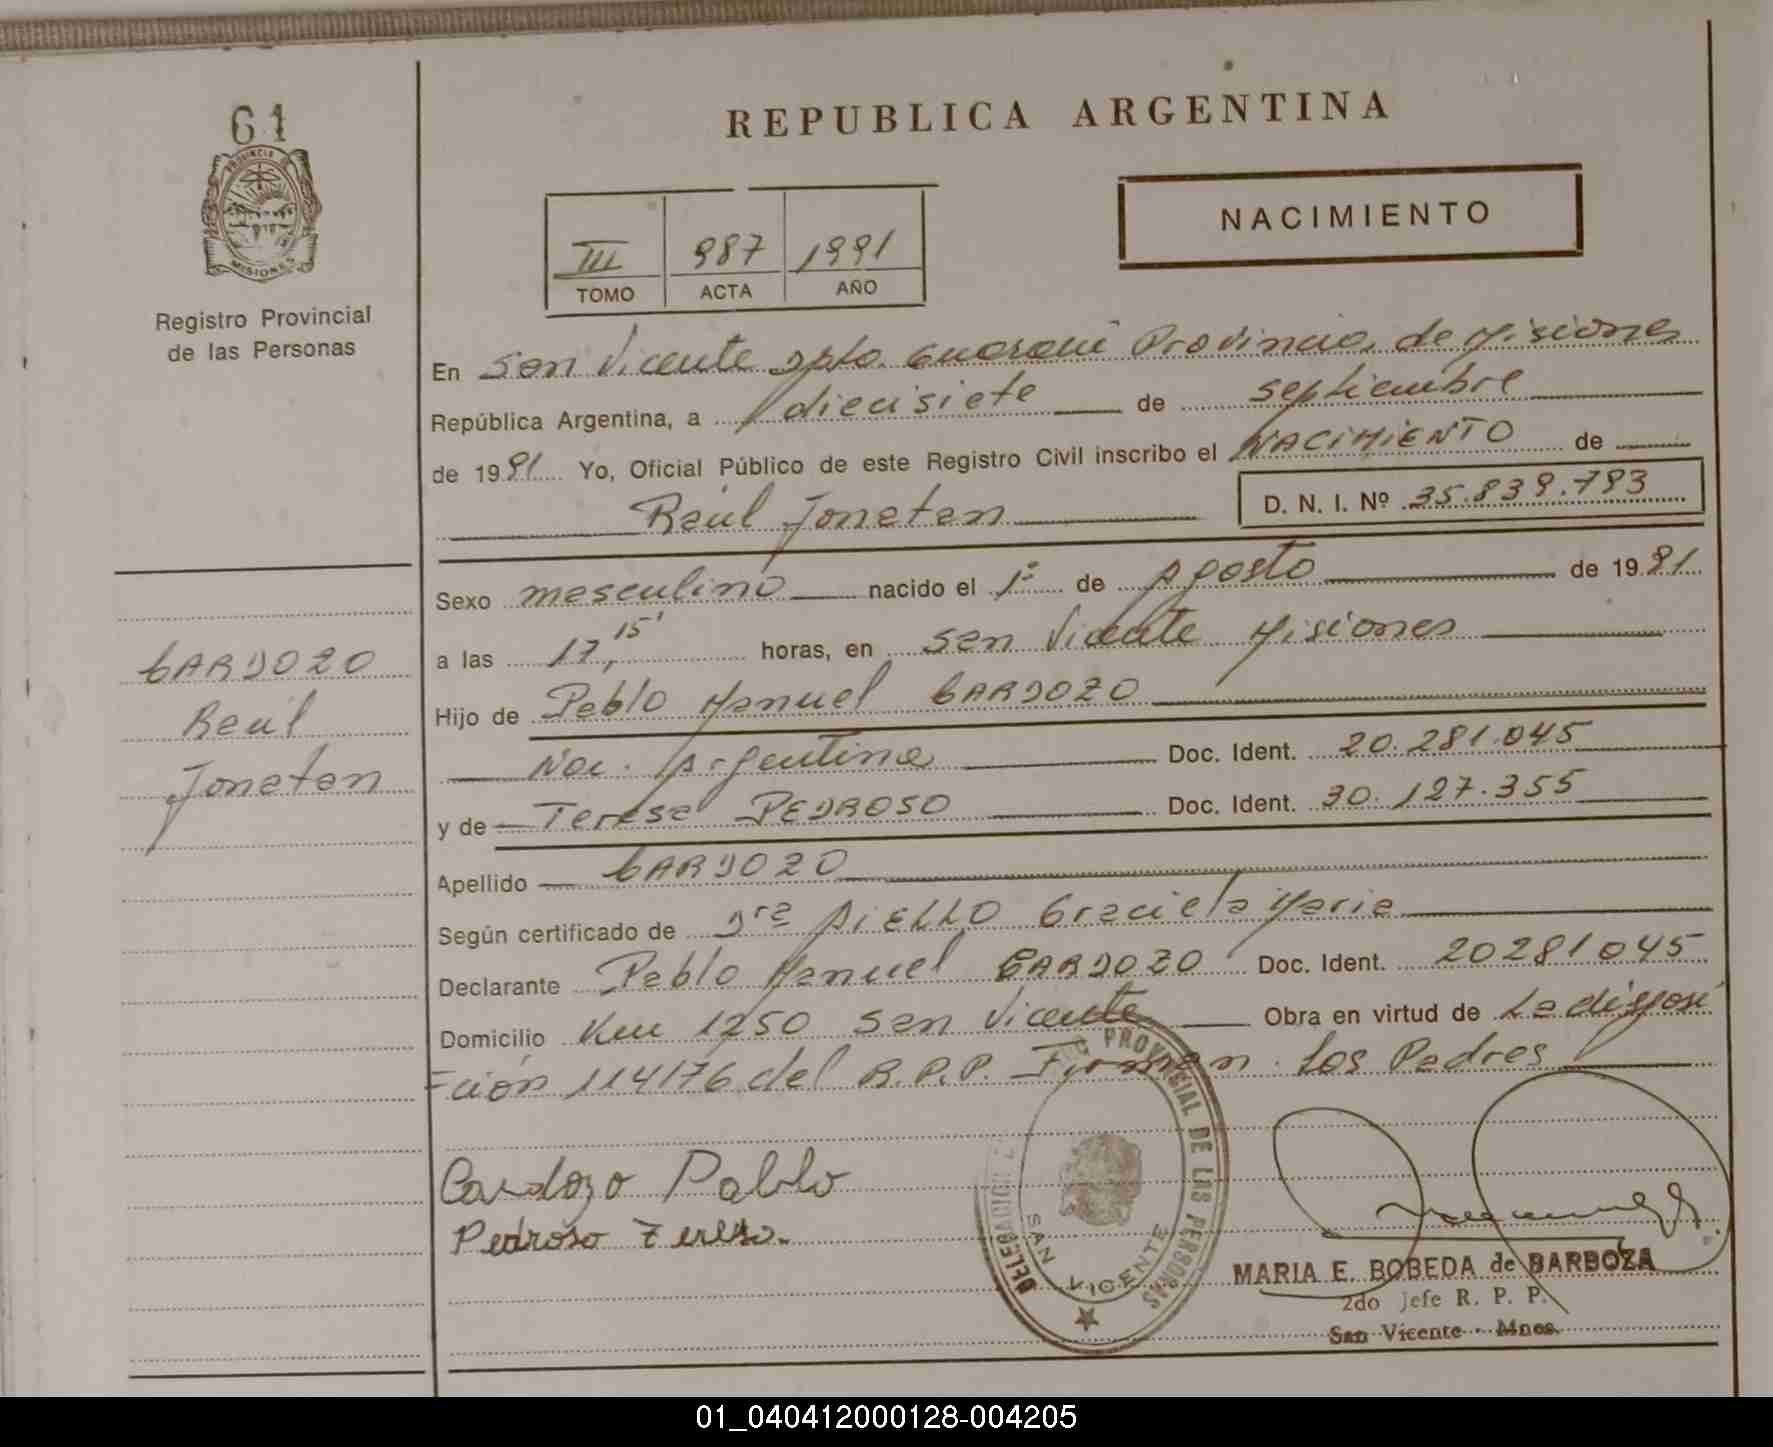 61
PROVINCIA DE
MISIONES
Registro Provincial
de las Personas
CARDOZO
Raúl
Jonatan
REPUBLICA ARGENTINA
NACIMIENTO
III 987 1991
TOMO ACTA AÑO
En San Vicente Dpto. Guaraní Provincia de Misiones
República Argentina, a diecisiete de septiembre
de 1991 Yo, Oficial Público de este Registro Civil inscribo el NACIMIENTO de
Raúl Jonatan D. N. I. Nº 35.839.793
Sexo masculino nacido el 1º de Agosto de 1991
a las 17,15' horas, en San Vicente Misiones
Hijo de Pablo Manuel CARDOZO
Nac. Argentina Doc. Ident. 20.281.045
y de Teresa PEDROSO Doc. Ident. 30.127.355
Apellido CARDOZO
Según certificado de Dra AIELLO Graciela Maria
Declarante Pablo Manuel CARDOZO Doc. Ident. 20281045
Domicilio Km 1250 San Vicente Obra en virtud de La disposi
ción 114176 del R.P.P. Firman los Padres
Cardozo Pablo
Pedroso Teresa.
PROVINCIAL DE LAS PERSONAS
DELEGACION
SAN VICENTE
MARIA E. BOBEDA de BARBOZA
2do Jefe R. P. P.
San Vicente - Mnes.
01_040412000128-004205